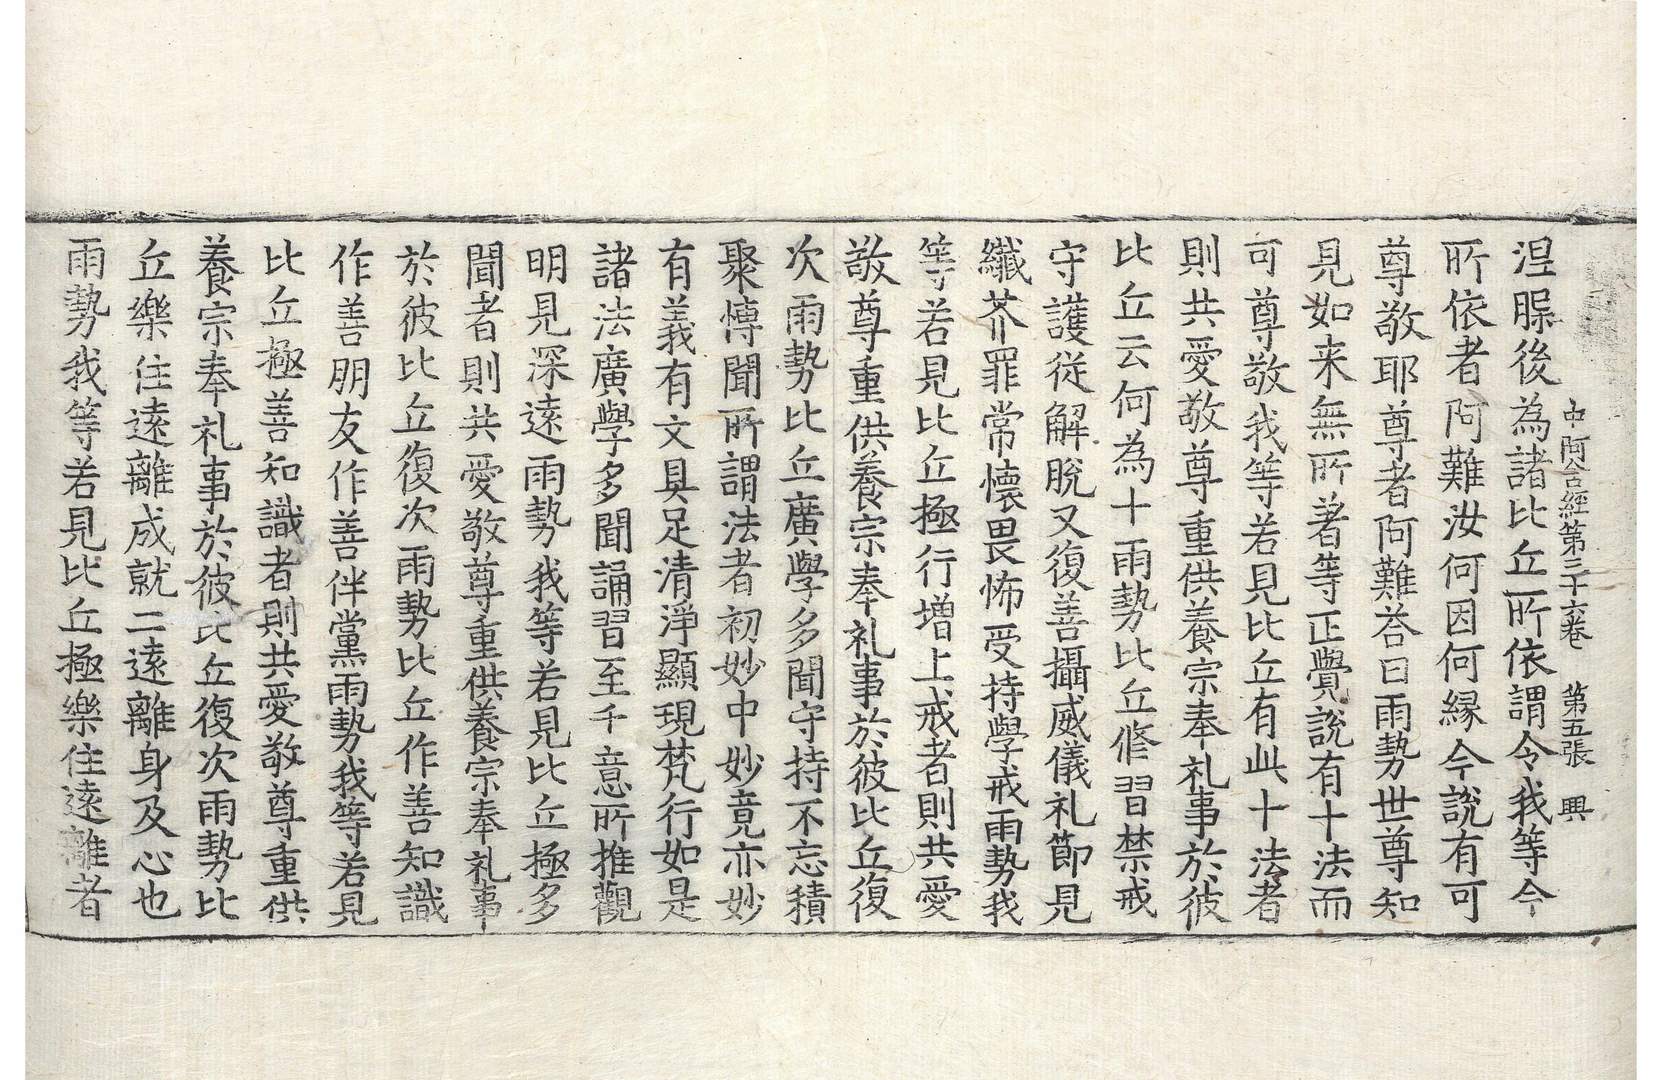 中阿含經第三十六卷　第五張　興
涅槃後為諸比丘所依謂令我等今
所依者阿難汝何因何縁今說有可
尊敬耶尊者阿難荅曰雨勢世尊知
見如来無所著等正覺說有十法而
可尊敬我等若見比丘有此十法者
則共愛敬尊重供養宗奉礼事於彼
比丘云何為十雨勢比丘修習禁戒
守護従解脫又復善攝威儀礼節見
纖芥罪常懷畏怖受持學戒雨勢我
等若見比丘極行增上戒者則共愛
敬尊重供養宗奉礼事於彼比丘復
次雨勢比丘廣學多聞守持不忘積
聚博聞所謂法者初妙中妙竟亦妙
有義有文具足清淨顯現梵行如是
諸法廣學多聞誦習至千意所推觀
明見深遠雨勢我等若見比丘極多
聞者則共愛敬尊重供養宗奉礼事
於彼比丘復次雨勢比丘作善知識
作善朋友作善伴黨雨勢我等若見
比丘極善知識者則共愛敬尊重供
養宗奉礼事於彼比丘復次雨勢比
丘樂住遠離成就二遠離身及心也
雨勢我等若見比丘極樂住遠離者